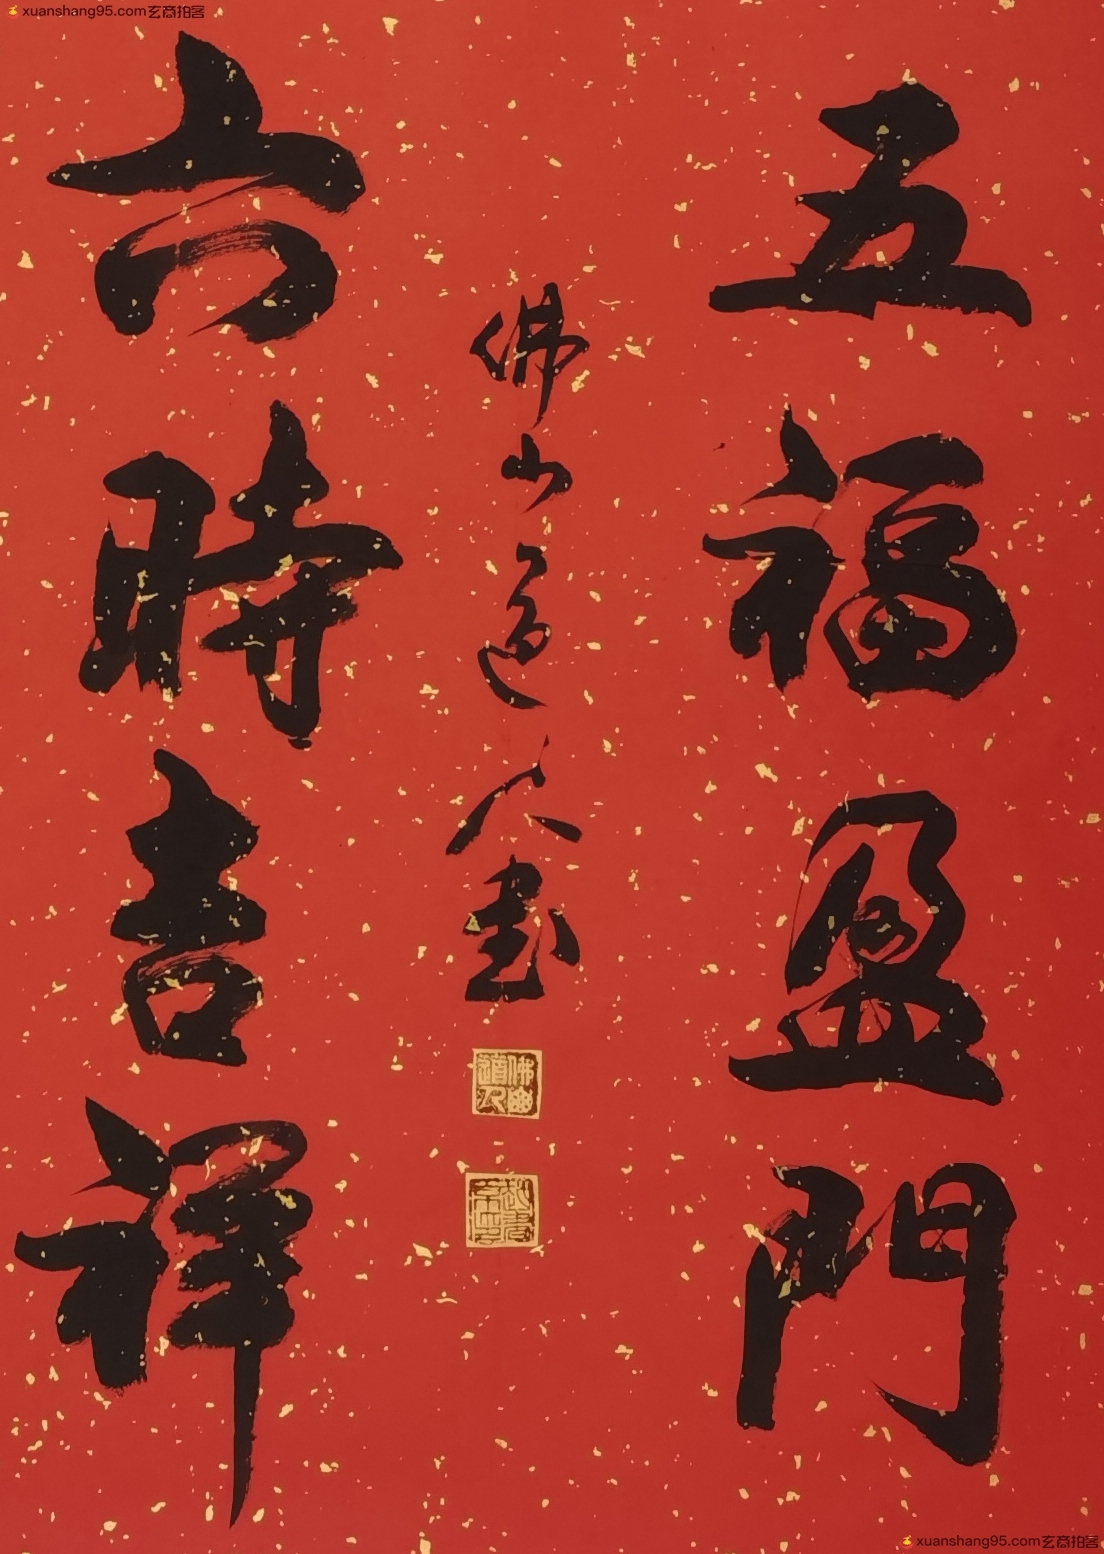 xuanshang95.com玄商拍客
五福盈門
六時吉祥
佛山道人書
佛山道人
xuanshang95.com玄商拍客